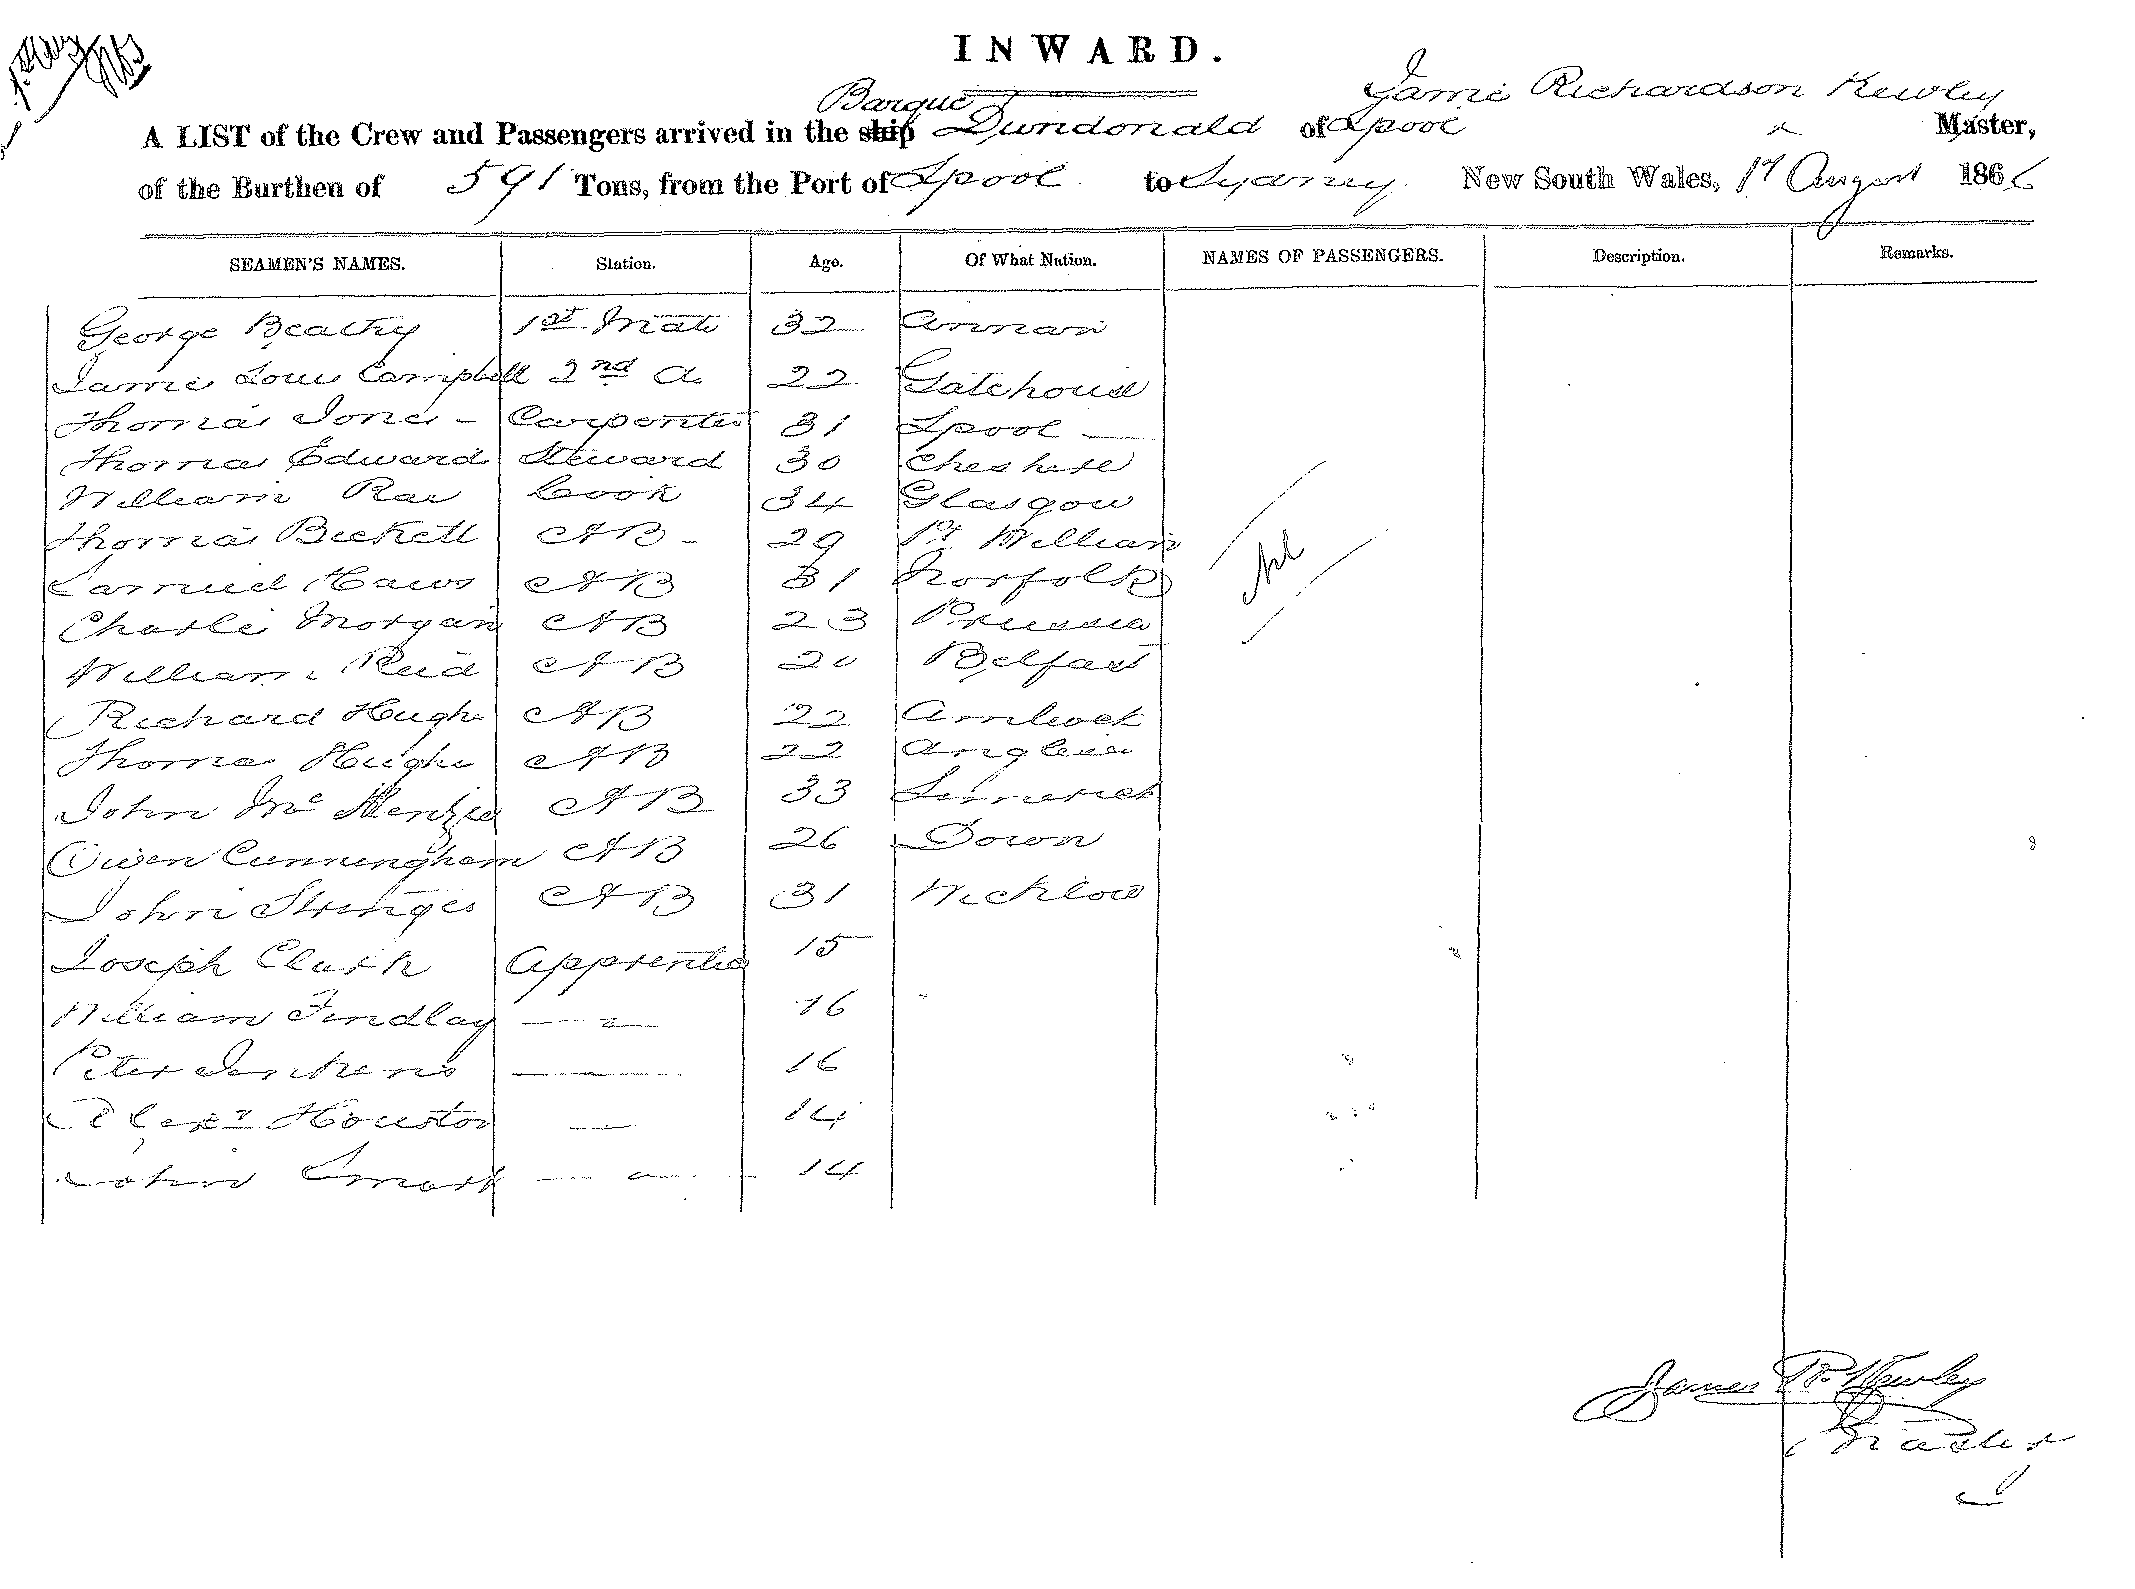 INWARD.
Barque James Richardson Kewley
A LIST of the Crew and Passengers arrived in the ship Dundonald of Lpool Master,
of the Burthen of 591 Tons, from the Port of Lpool to Sydney New South Wales, 1st August 1866
SEAMEN'S NAMES. Station. Age. Of What Nation. NAMES OF PASSENGERS. Description. Remarks.
George Beatty 1st Mate 32 Annan
James Louis Campbell 2nd do 22 Gatehouse
Thomas Jones - Carpenter 31 Lpool
Thomas Edwards Steward 30 Cheshire
William Rae Cook 34 Glasgow
Thomas Beckett AB - 29 Pt William
Samuel Haws AB 31 Norfolk
Nil
Charles Morgan AB 23 Prussia
William Reid AB 20 Belfast
Richard Hughs AB 22 Amlwch
Thomas Hughs AB 22 Anglesea
John Mc Menzie AB 33 Limerick
Owen Cunningham AB 26 Down
John Stringes AB 31 Wicklow
Joseph Clark Apprentice 15
William Findlay 16
Peter Jenkens 16
Alexr Houston 14
John Smart 14
James R. Kewley
Master